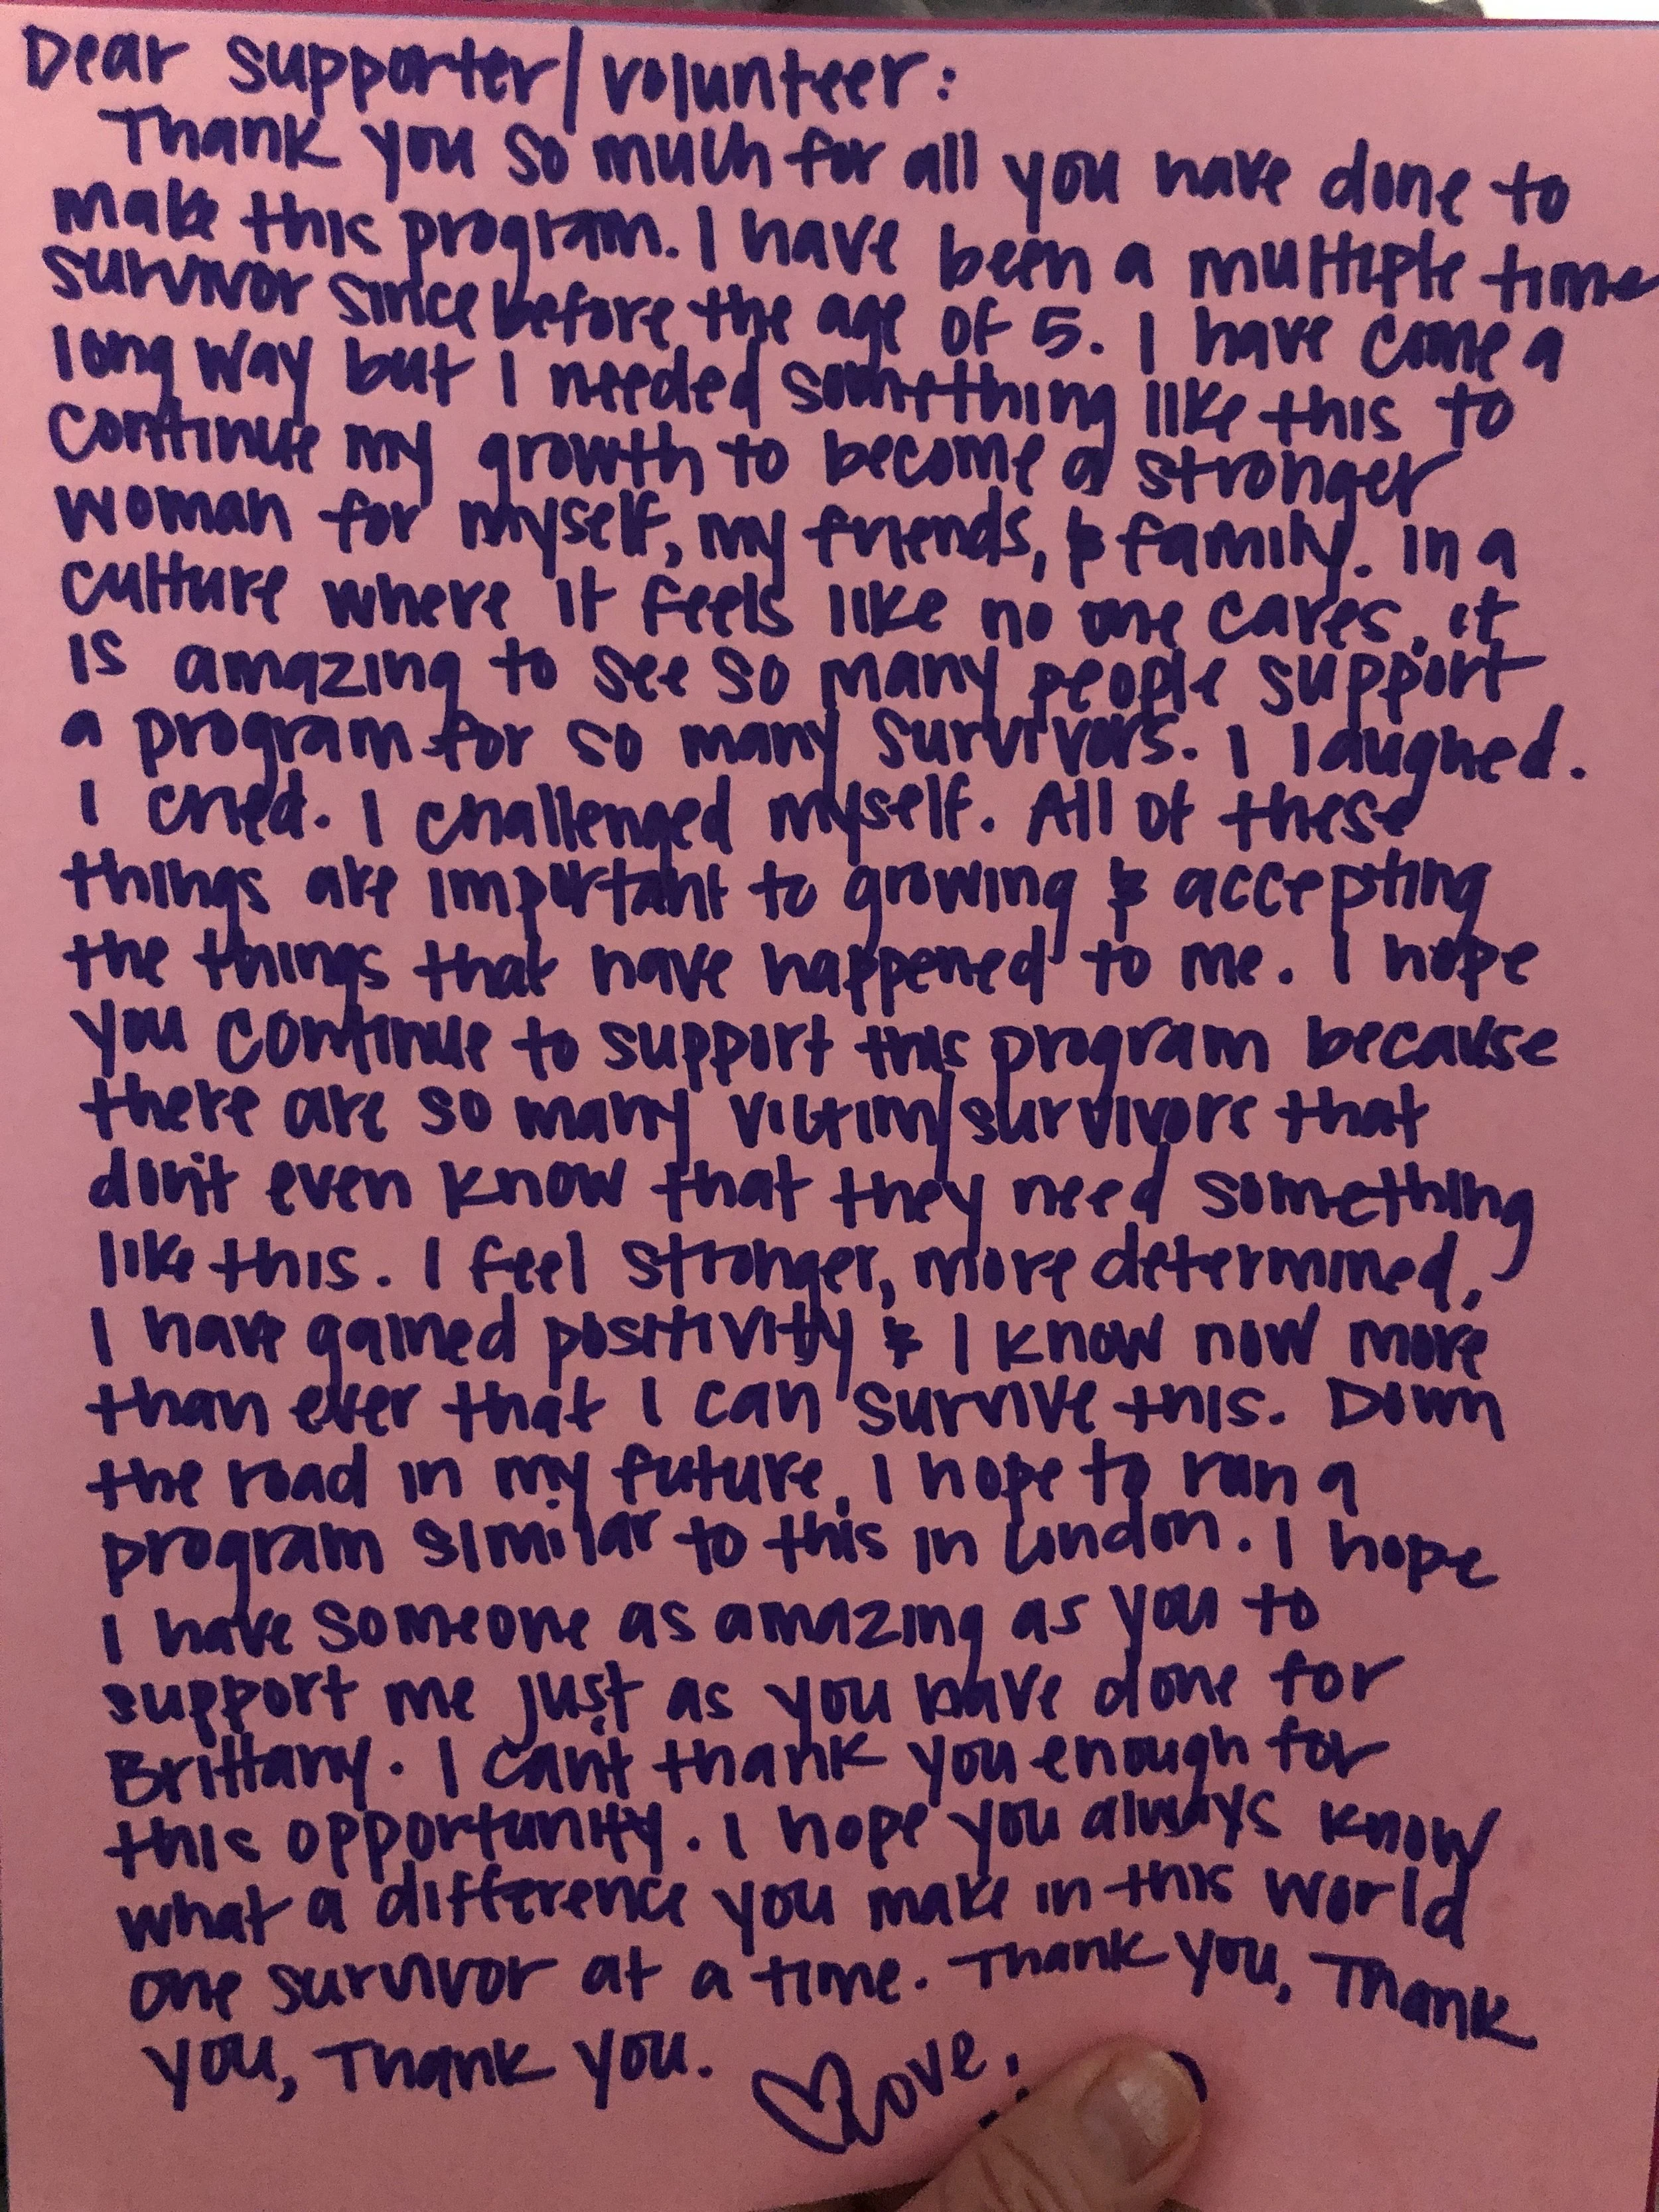 Dear supporter/volunteer:
Thank you so much for all you have done to
make this program. I have been a multiple time
survivor since before the age of 5. I have come a
long way but I needed something like this to
continue my growth to become a stronger
woman for myself, my friends, & family. In a
culture where it feels like no one cares, it
is amazing to see so many people support
a program for so many survivors. I laughed.
I cried. I challenged myself. All of these
things are important to growing & accepting
the things that have happened to me. I hope
you continue to support this program because
there are so many victim/survivors that
don't even know that they need something
like this. I feel stronger, more determined,
I have gained positivity & I know now more
than ever that I can survive this. Down
the road in my future, I hope to run a
program similar to this in London. I hope
I have someone as amazing as you to
support me just as you have done for
Brittany. I can't thank you enough for
this opportunity. I hope you always know
what a difference you make in this world
one survivor at a time. Thank you, Thank
you, Thank you.
Love,